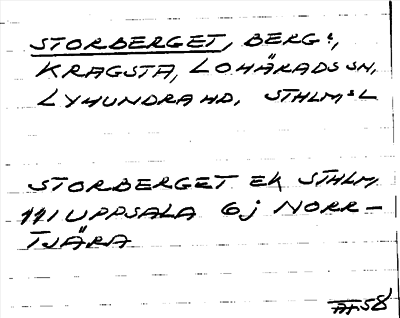 STORBERGET, BERG:,
KRAGSTA, LOHÄRADS SN,
LYHUNDRA HD, STHLM:L
STORBERGET EK STHLM
111 UPPSALA 6j NORR-
TJÄRA
58